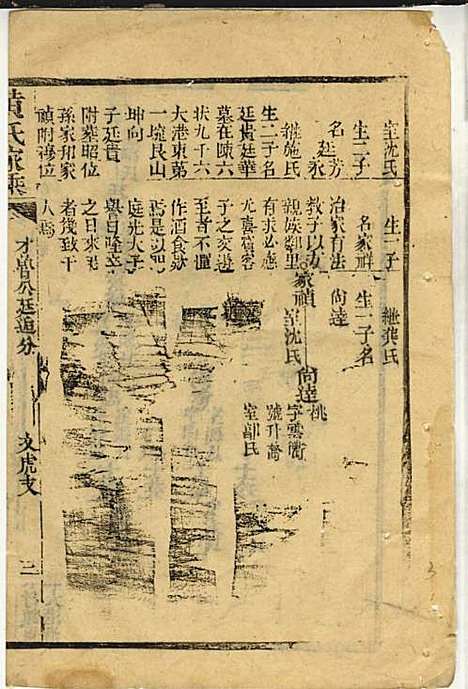 室沈氏
生二子
名廷芳
廷家
継施氏
生二子名
廷貴廷華
墓在陳六
状九千六
大港東第
一境艮山
坤向
子廷貴
附葬昭位
孫家和家
禎附穆位
生一子
名家祥
治家有法
教子以方
親族鄰里
有求必應
尤喜賓客
子之交遊
至者不僅
作酒食款
焉是以門
庭光大子
譽日隆幸
之日來死
者後致千
人焉
継龔氏
生一子名
尚達
家禎
室沈氏
尚達
字雲衢
號升喬
室郁氏
桃
黃氏家乘
才曾公廷道分
文虎支
二